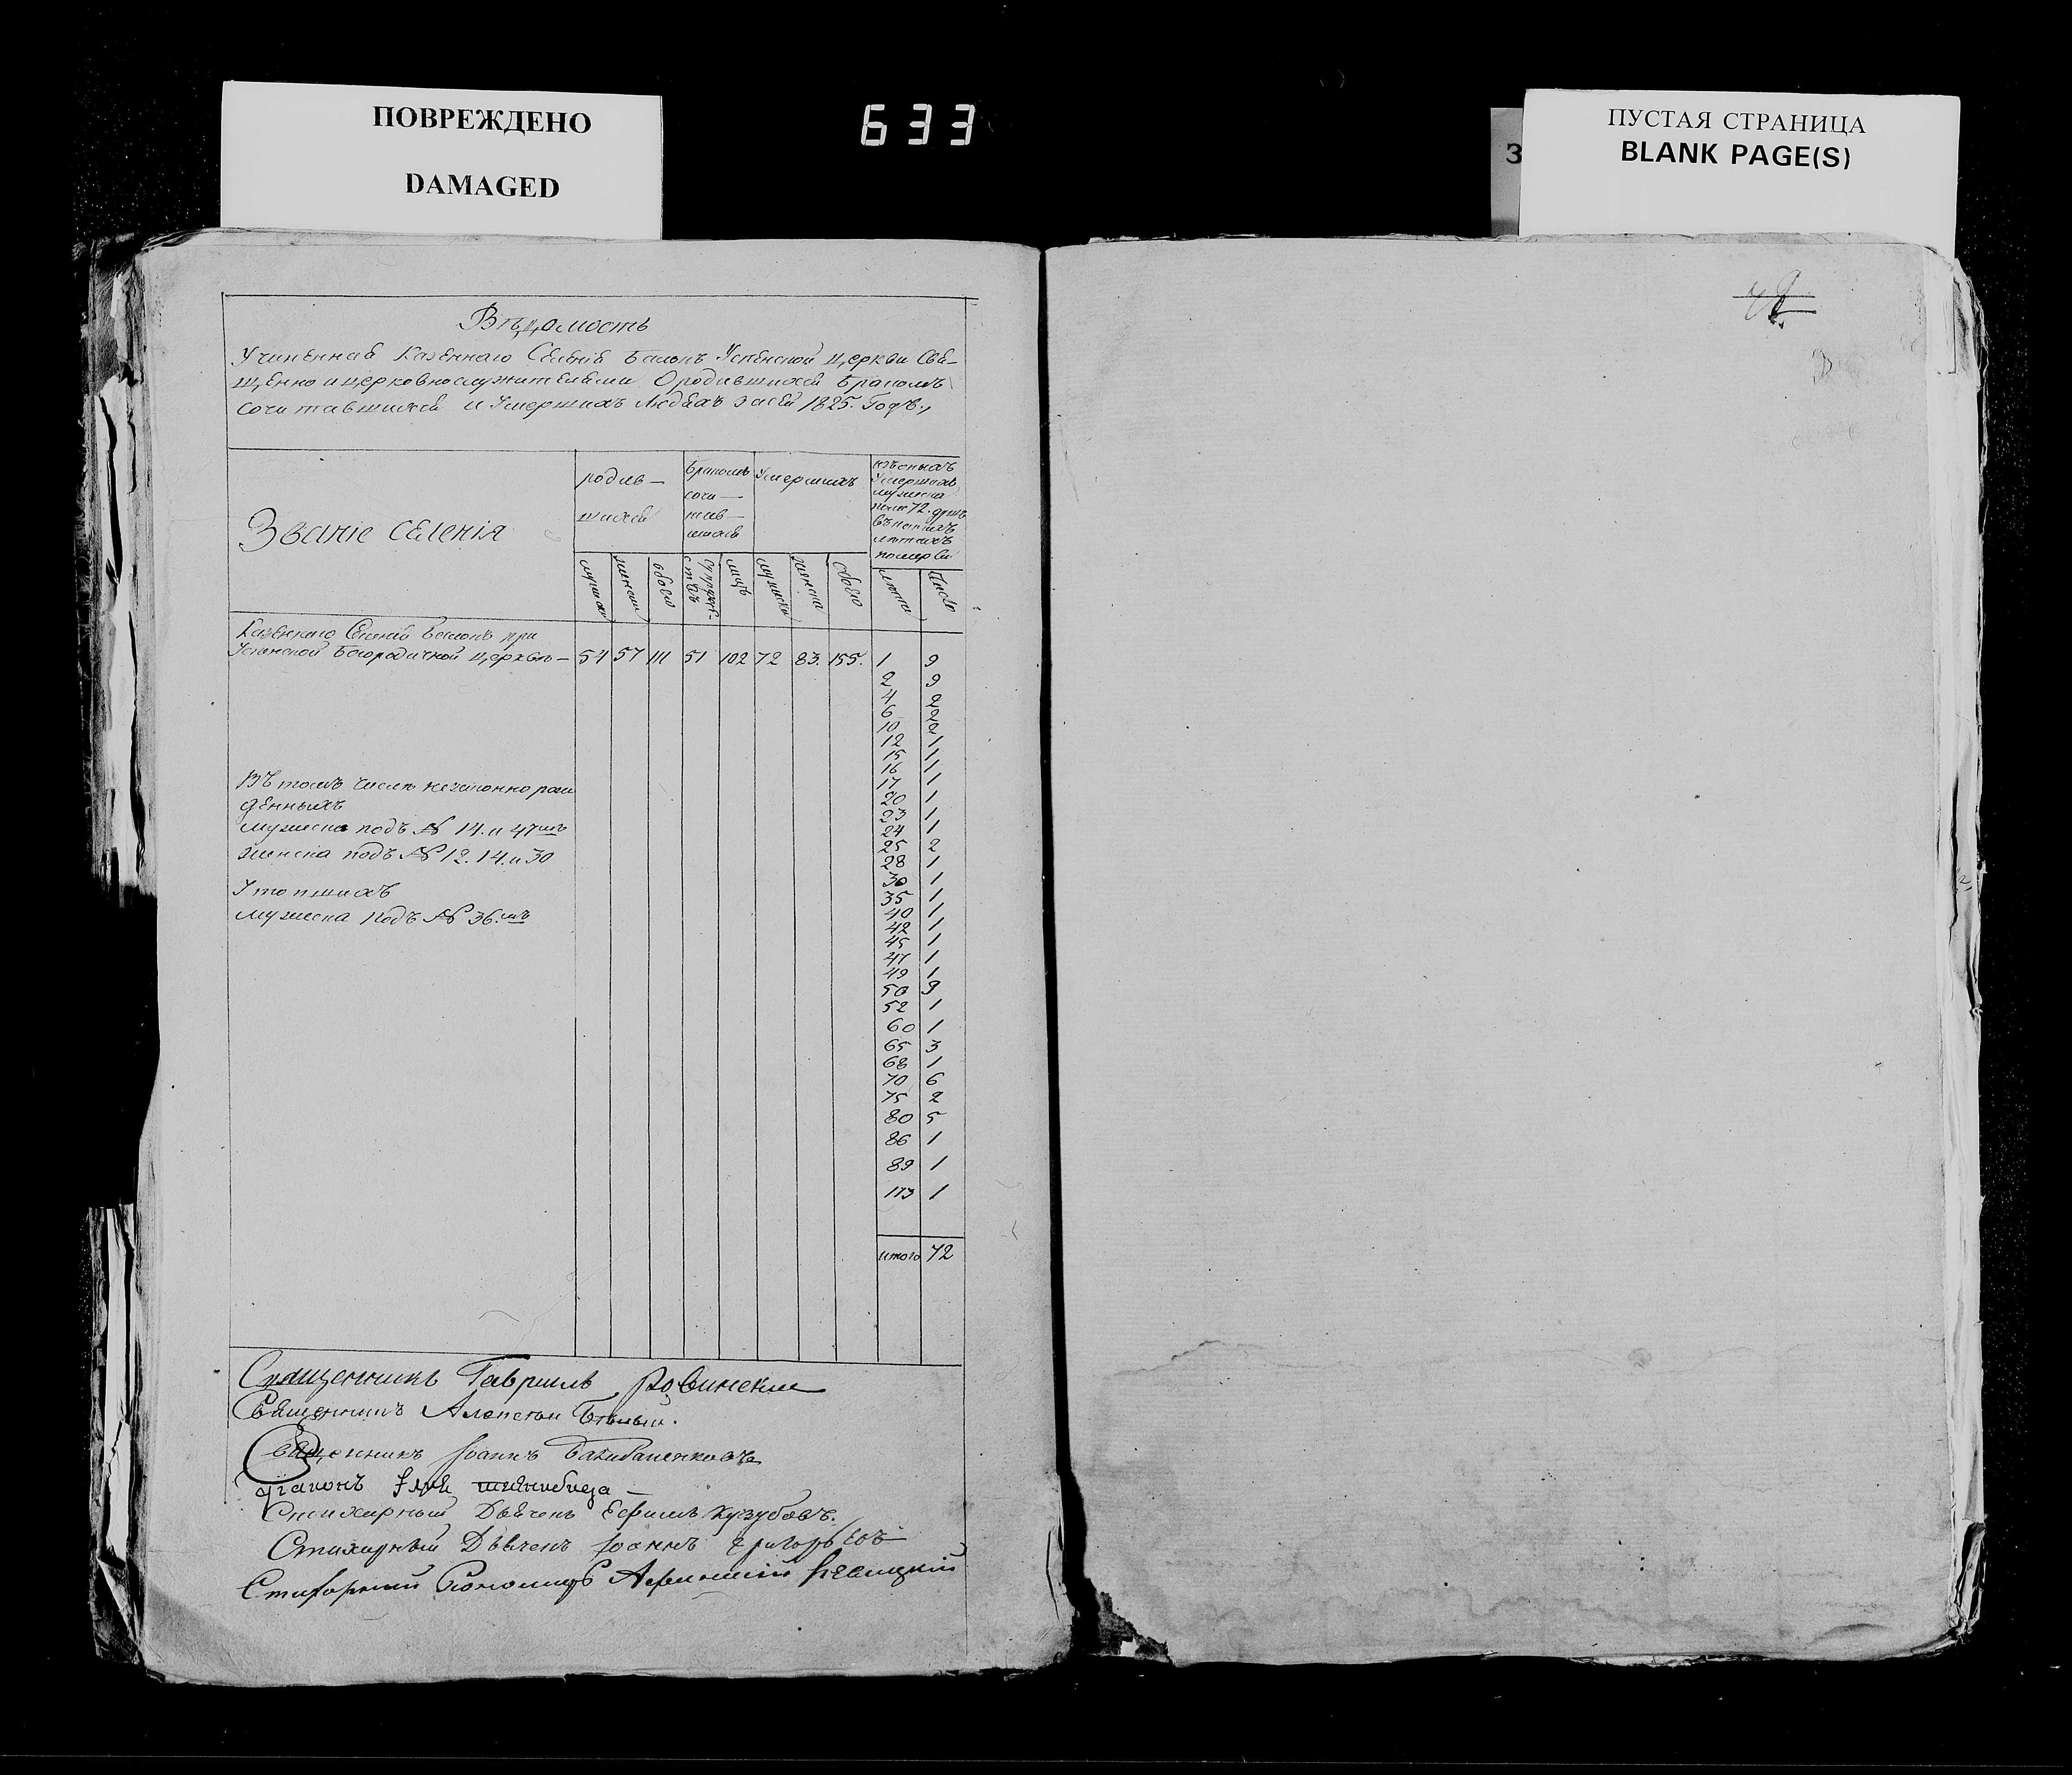 ПОВРЕЖДЕНО
DAMAGED
633
3
ПУСТАЯ СТРАНИЦА
BLANK PAGE(S)
Вѣдомость
Учиненная Казеннаго Селенія Балокъ Успенской церкви Свя-
щенно и церковнослужителями О родившихся Бракомъ
сочитавшихся и Умершихъ Людяхъ за сей 1825. Годъ.,
Званіе селенія
родив-
шихся
Бракомъ
сочи-
тав-
шихся
Умершихъ
изъ оныхъ
Умершихъ
мужска
пола 72. душъ
въ какихъ
лѣтахъ
померли
мужска
женска
обоего
супружествъ
лицъ
мужска
женска
обоего
лѣта
Число
Казеннаго Селенія Балокъ при
Успенской Богородичной церквѣ- 54 57 111 51 102 72 83. 155. 1 9
2 9
4 2
6 2
10 2
12 1
15 1
16 1
17 1
20 1
23 1
24 1
25 2
28 1
30 1
35 1
40 1
42 1
45 1
47 1
49 1
50 9
52 1
60 1
65 3
68 1
70 6
75 2
80 5
86 1
89 1
113 1
итого 72
Въ томъ числѣ незаконно рож
денныхъ
мужска подъ № 14. и 47мъ
женска подъ № 12. 14. и 30
Утопшихъ
мужска подъ № 36.мъ
Священникъ Гавриилъ Ровинский
Священникъ Алексѣй Бѣлый.
Священникъ Іоаннъ
Діаконъ
Стихарный Дьячекъ Ефимъ Кузубовъ.
Стихарный Дьячекъ Іоаннъ Григорьевъ
Стихарный Пономарь Афанасій Левицкий